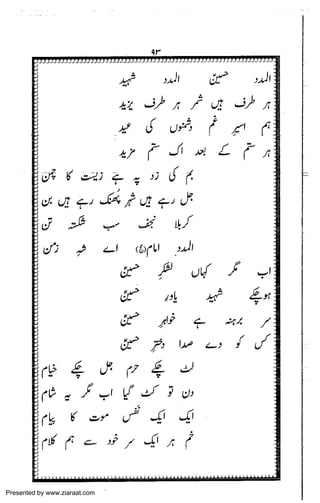 ۹۳
المدد حسینؑ المدد شہید
ہر طرف ہیں شمر ہر طرف یزید
ہم اسیرِ غم دشمنوں کی عید
ہر ستم کے بعد اک ستم مزید
بم کی زد پہ ہے زیست کا چمن
جل رہے ہیں شہر پُھنک رہے ہیں بن
کربلا نجف سب شکستہ تن
المدد امام(ع) اے شہِ زمن
اب مگر کہاں لشکرِ حسینؑ
ہوچکے شہید یاورِ حسینؑ
سر برہنہ ہے خواہرِ حسینؑ
کس کو دے صدا دخترِ حسینؑ
لٹ چکے حرم جل چکے خیام
دن تو کٹ گیا اب مگر یہ شام
ایک ایک نفس موت کا پیام
خم ہر ایک سر خود سے ہم کلام
Presented by www.ziaraat.com